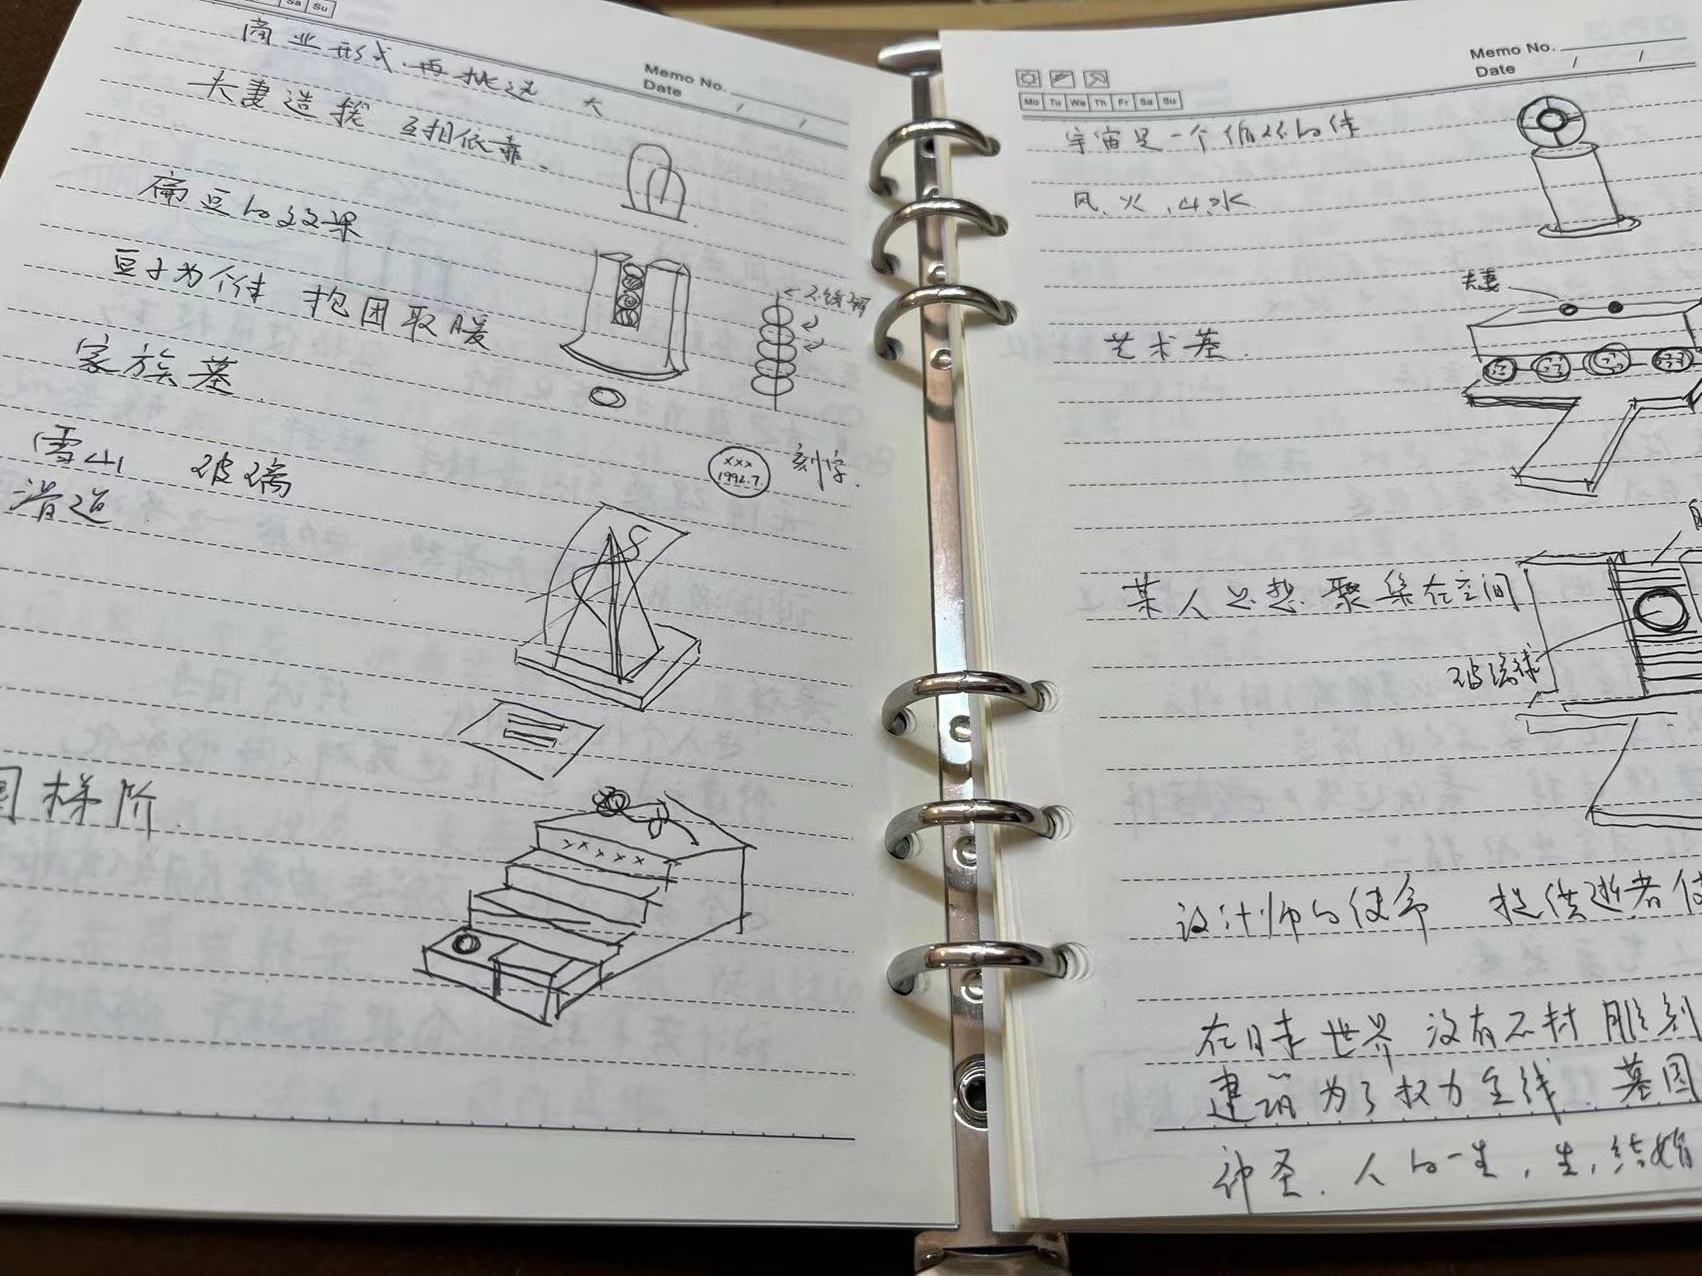 Sa Su
Memo No.
Date / /
商业形式.再挑选 大
夫妻造挨 互相依靠.
扁豆的效果
豆子为个体 抱团取暖
不锈钢
家族墓
雪山 玻璃
滑道
xxx
1992.7.
刻字.
梯阶
xxxxx
Memo No.
Date / /
Mo Tu We Th Fr Sa Su
宇宙是一个循环的体
风、火、山、水
夫妻
艺术墓.
某人思想.聚集在空间
玻璃球
设计师的使命 提供逝者使
在日本世界 没有不村雕刻
建筑为了权力 墓园
神圣. 人的一生, 生, 结婚